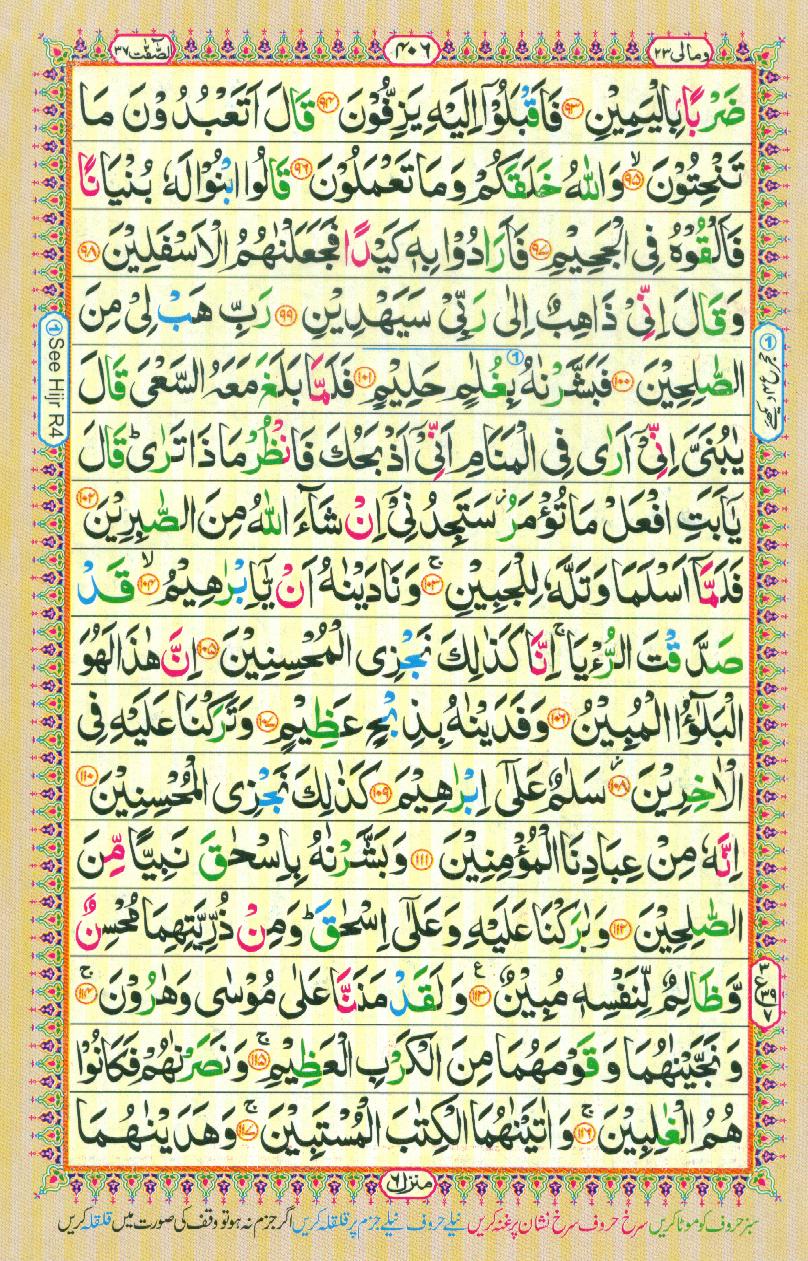 وَمَالِیَ ٢٣
٤٠٦
اَلصّٰٓفّٰت ٣٧
ضَرْبًۢا بِالْیَمِیْنِ ﴿٩٣﴾ فَاَقْبَلُوْۤا اِلَیْهِ یَزِفُّوْنَ ﴿٩٤﴾ قَالَ اَتَعْبُدُوْنَ مَا
تَنْحِتُوْنَ ﴿٩٥﴾ۙ وَاللّٰهُ خَلَقَكُمْ وَمَا تَعْمَلُوْنَ ﴿٩٦﴾ قَالُوا ابْنُوْا لَهٗ بُنْیَانًا
فَاَلْقُوْهُ فِی الْجَحِیْمِ ﴿٩٧﴾ فَاَرَادُوْا بِهٖ كَیْدًا فَجَعَلْنٰهُمُ الْاَسْفَلِیْنَ ﴿٩٨﴾
وَقَالَ اِنِّیْ ذَاهِبٌ اِلٰی رَبِّیْ سَیَهْدِیْنِ ﴿٩٩﴾ رَبِّ هَبْ لِیْ مِنَ
الصّٰلِحِیْنَ ﴿١٠٠﴾ فَبَشَّرْنٰهُ بِغُلٰمٍ حَلِیْمٍ ﴿١٠١﴾ فَلَمَّا بَلَغَ مَعَهُ السَّعْیَ قَالَ
یٰبُنَیَّ اِنِّیْۤ اَرٰی فِی الْمَنَامِ اَنِّیْۤ اَذْبَحُكَ فَانْظُرْ مَاذَا تَرٰیؕ قَالَ
یٰۤاَبَتِ افْعَلْ مَا تُؤْمَرُؗ سَتَجِدُنِیْۤ اِنْ شَآءَ اللّٰهُ مِنَ الصّٰبِرِیْنَ ﴿١٠٢﴾
فَلَمَّاۤ اَسْلَمَا وَتَلَّهٗ لِلْجَبِیْنِ ﴿١٠٣﴾ۚ وَنَادَیْنٰهُ اَنْ یّٰۤاِبْرٰهِیْمُ ﴿١٠٤﴾ۙ قَدْ
صَدَّقْتَ الرُّءْیَاۚ اِنَّا كَذٰلِكَ نَجْزِی الْمُحْسِنِیْنَ ﴿١٠٥﴾ اِنَّ هٰذَا لَهُوَ
الْبَلٰٓؤُا الْمُبِیْنُ ﴿١٠٦﴾ وَفَدَیْنٰهُ بِذِبْحٍ عَظِیْمٍ ﴿١٠٧﴾ وَتَرَكْنَا عَلَیْهِ فِی
الْاٰخِرِیْنَ ﴿١٠٨﴾ۖ سَلٰمٌ عَلٰۤی اِبْرٰهِیْمَ ﴿١٠٩﴾ كَذٰلِكَ نَجْزِی الْمُحْسِنِیْنَ ﴿١١٠﴾
اِنَّهٗ مِنْ عِبَادِنَا الْمُؤْمِنِیْنَ ﴿١١١﴾ وَبَشَّرْنٰهُ بِاِسْحٰقَ نَبِیًّا مِّنَ
الصّٰلِحِیْنَ ﴿١١٢﴾ وَبٰرَكْنَا عَلَیْهِ وَعَلٰۤی اِسْحٰقَؕ وَمِنْ ذُرِّیَّتِهِمَا مُحْسِنٌ
وَّظَالِمٌ لِّنَفْسِهٖ مُبِیْنٌ ﴿١١٣﴾ۧ وَلَقَدْ مَنَنَّا عَلٰی مُوْسٰی وَهٰرُوْنَ ﴿١١٤﴾ۚ
وَنَجَّیْنٰهُمَا وَقَوْمَهُمَا مِنَ الْكَرْبِ الْعَظِیْمِ ﴿١١٥﴾ۚ وَنَصَرْنٰهُمْ فَكَانُوْا
هُمُ الْغٰلِبِیْنَ ﴿١١٦﴾ۚ وَاٰتَیْنٰهُمَا الْكِتٰبَ الْمُسْتَبِیْنَ ﴿١١٧﴾ۚ وَهَدَیْنٰهُمَا
① See Hijr R4
٣ ع ٣٩ ٧
منزل ٦
سبز حروف کو موٹا کریں سرخ حروف سرخ نشان پر غنہ کریں نیلے حروف نیلے جزم پر قلقلہ کریں اگر جزم نہ ہو تو وقف کی صورت میں قلقلہ کریں